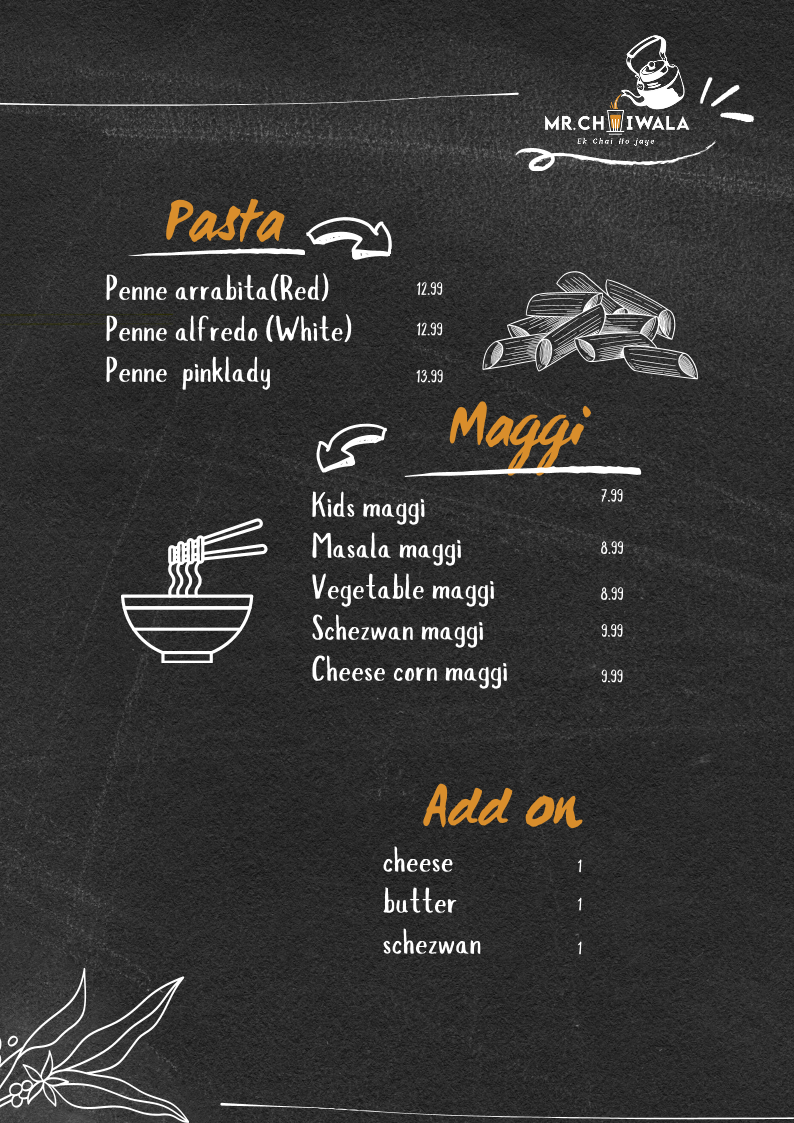 MR.CHAIWALA
Ek Chai Ho jaye
Pasta
Penne arrabita(Red) 12.99
Penne alfredo (White) 12.99
Penne pinklady 13.99
Maggi
Kids maggi 7.99
Masala maggi 8.99
Vegetable maggi 8.99
Schezwan maggi 9.99
Cheese corn maggi 9.99
Add on
cheese 1
butter 1
schezwan 1